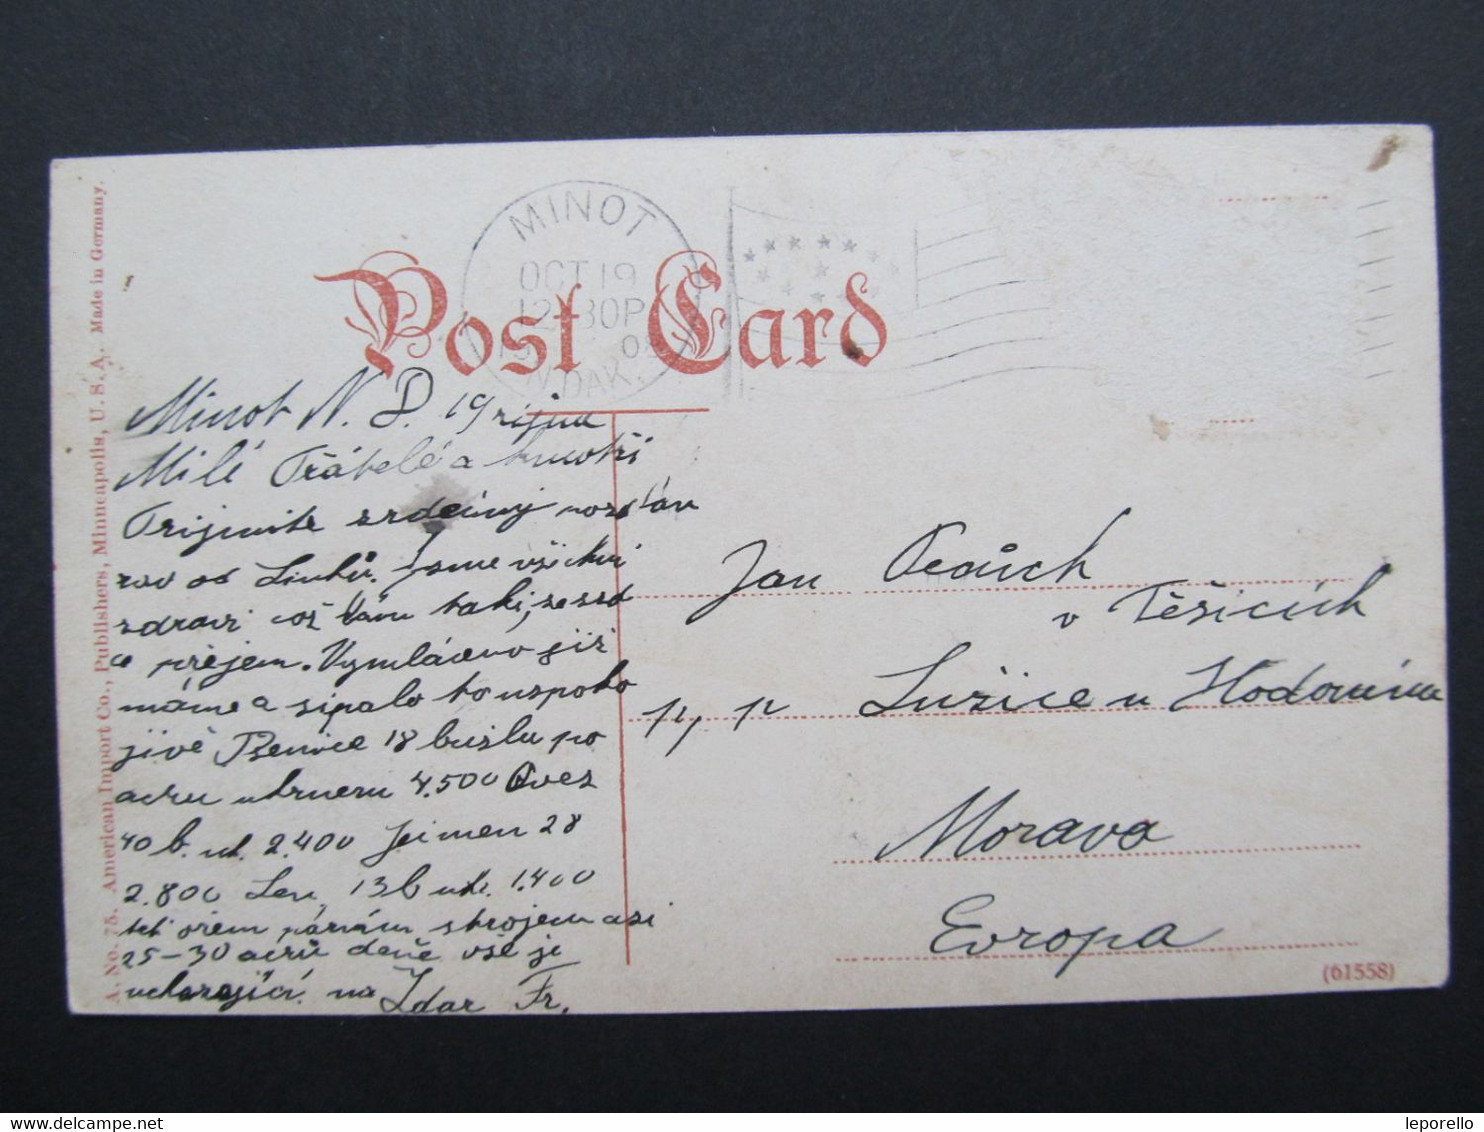 A. No. 75. American Import Co., Publishers, Minneapolis, U. S. A. Made in Germany.
MINOT
OCT 19
12 30P
N. DAK.
Post Card
Minot N. D. 19 října
Milé Přátelé a
Prijmite srdečný pozdav
rav od Jsme všickni
zdravi což Vám taki ze srd
ce přejem. Vymláceno již
máme a sipalo to uspoko
jivě Psenice 18 bušlu po
acru 4.500 Oves
40 b. uh. 2.400 Jeimen 28
2.800 Len, 13 b uh. 1.400
teť ořem párním strojem asi
25-30 acrů deně vše je
na Zdar Fr.
Jan
v Těšicích
p, p Lužice u Hodonína
Morava
Evropa
(61558)
leporello